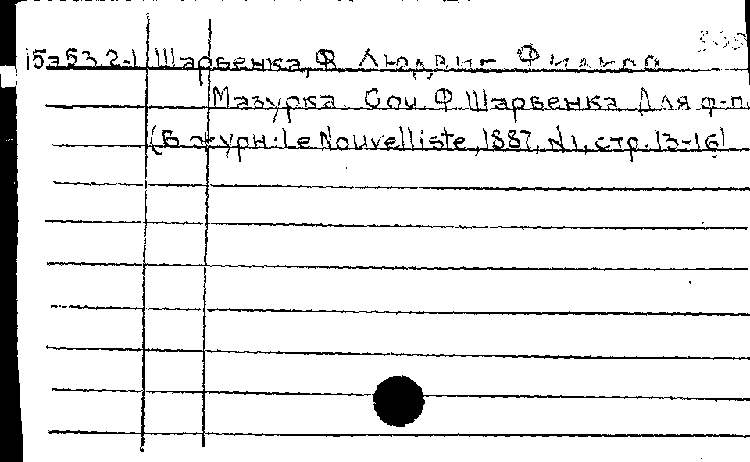 15а53.2-1 Шарвенка, Ф. Людвиг Филипп
Мазурка. Соч. Ф. Шарвенка. Для ф-п.
(В журн: Le Nouvelliste, 1887, N1, стр. 13-16)